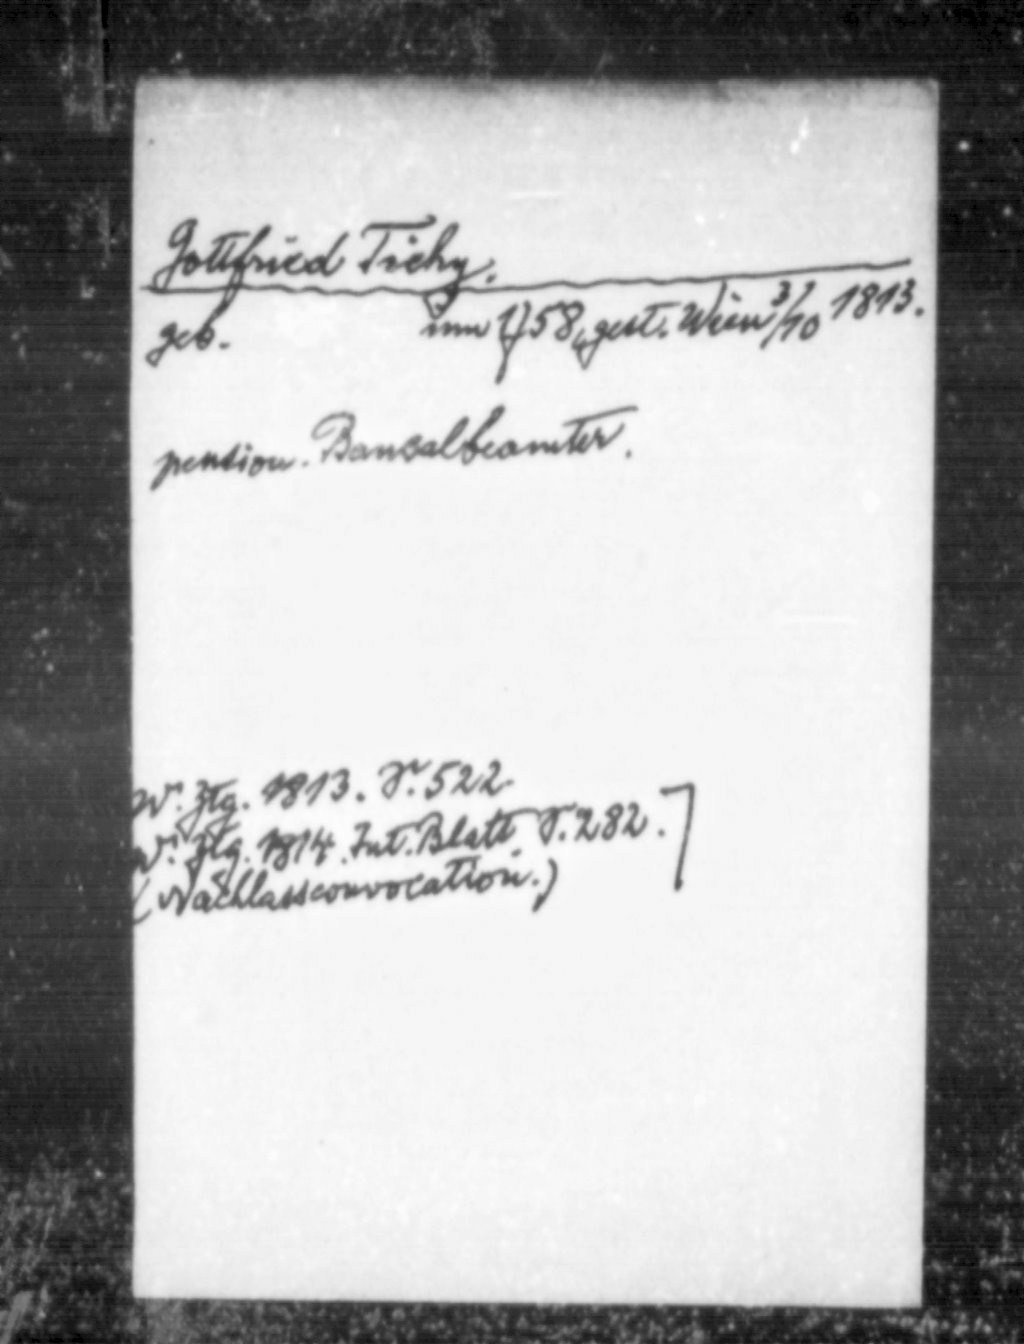 Gottfried Tichy.
geb. um 1758, gest. Wien 3/10 1813.
pension. Bancalbeamter.
W. Ztg. 1813. S. 522
W. Ztg. 1814. Int. Blatt S. 282.]
(Nachlassconvocation.)